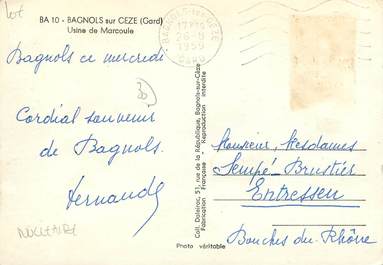 lot
BA 10 - BAGNOLS sur CEZE (Gard)
Usine de Marcoule
17H15
26-8
1959
GARD
Bagnols ce mercredi
30
Cordial souvenir
de Bagnols.
Fernande
NUCLEAIRE
Photo véritable
Coll. Daleirac, 51, rue de la République, Bagnols-sur-Cèze
Fabrication Française - Reproduction interdite
Monsieur, Mesdames
Sempé-Brustier
Entressen
Bouches-du-Rhône